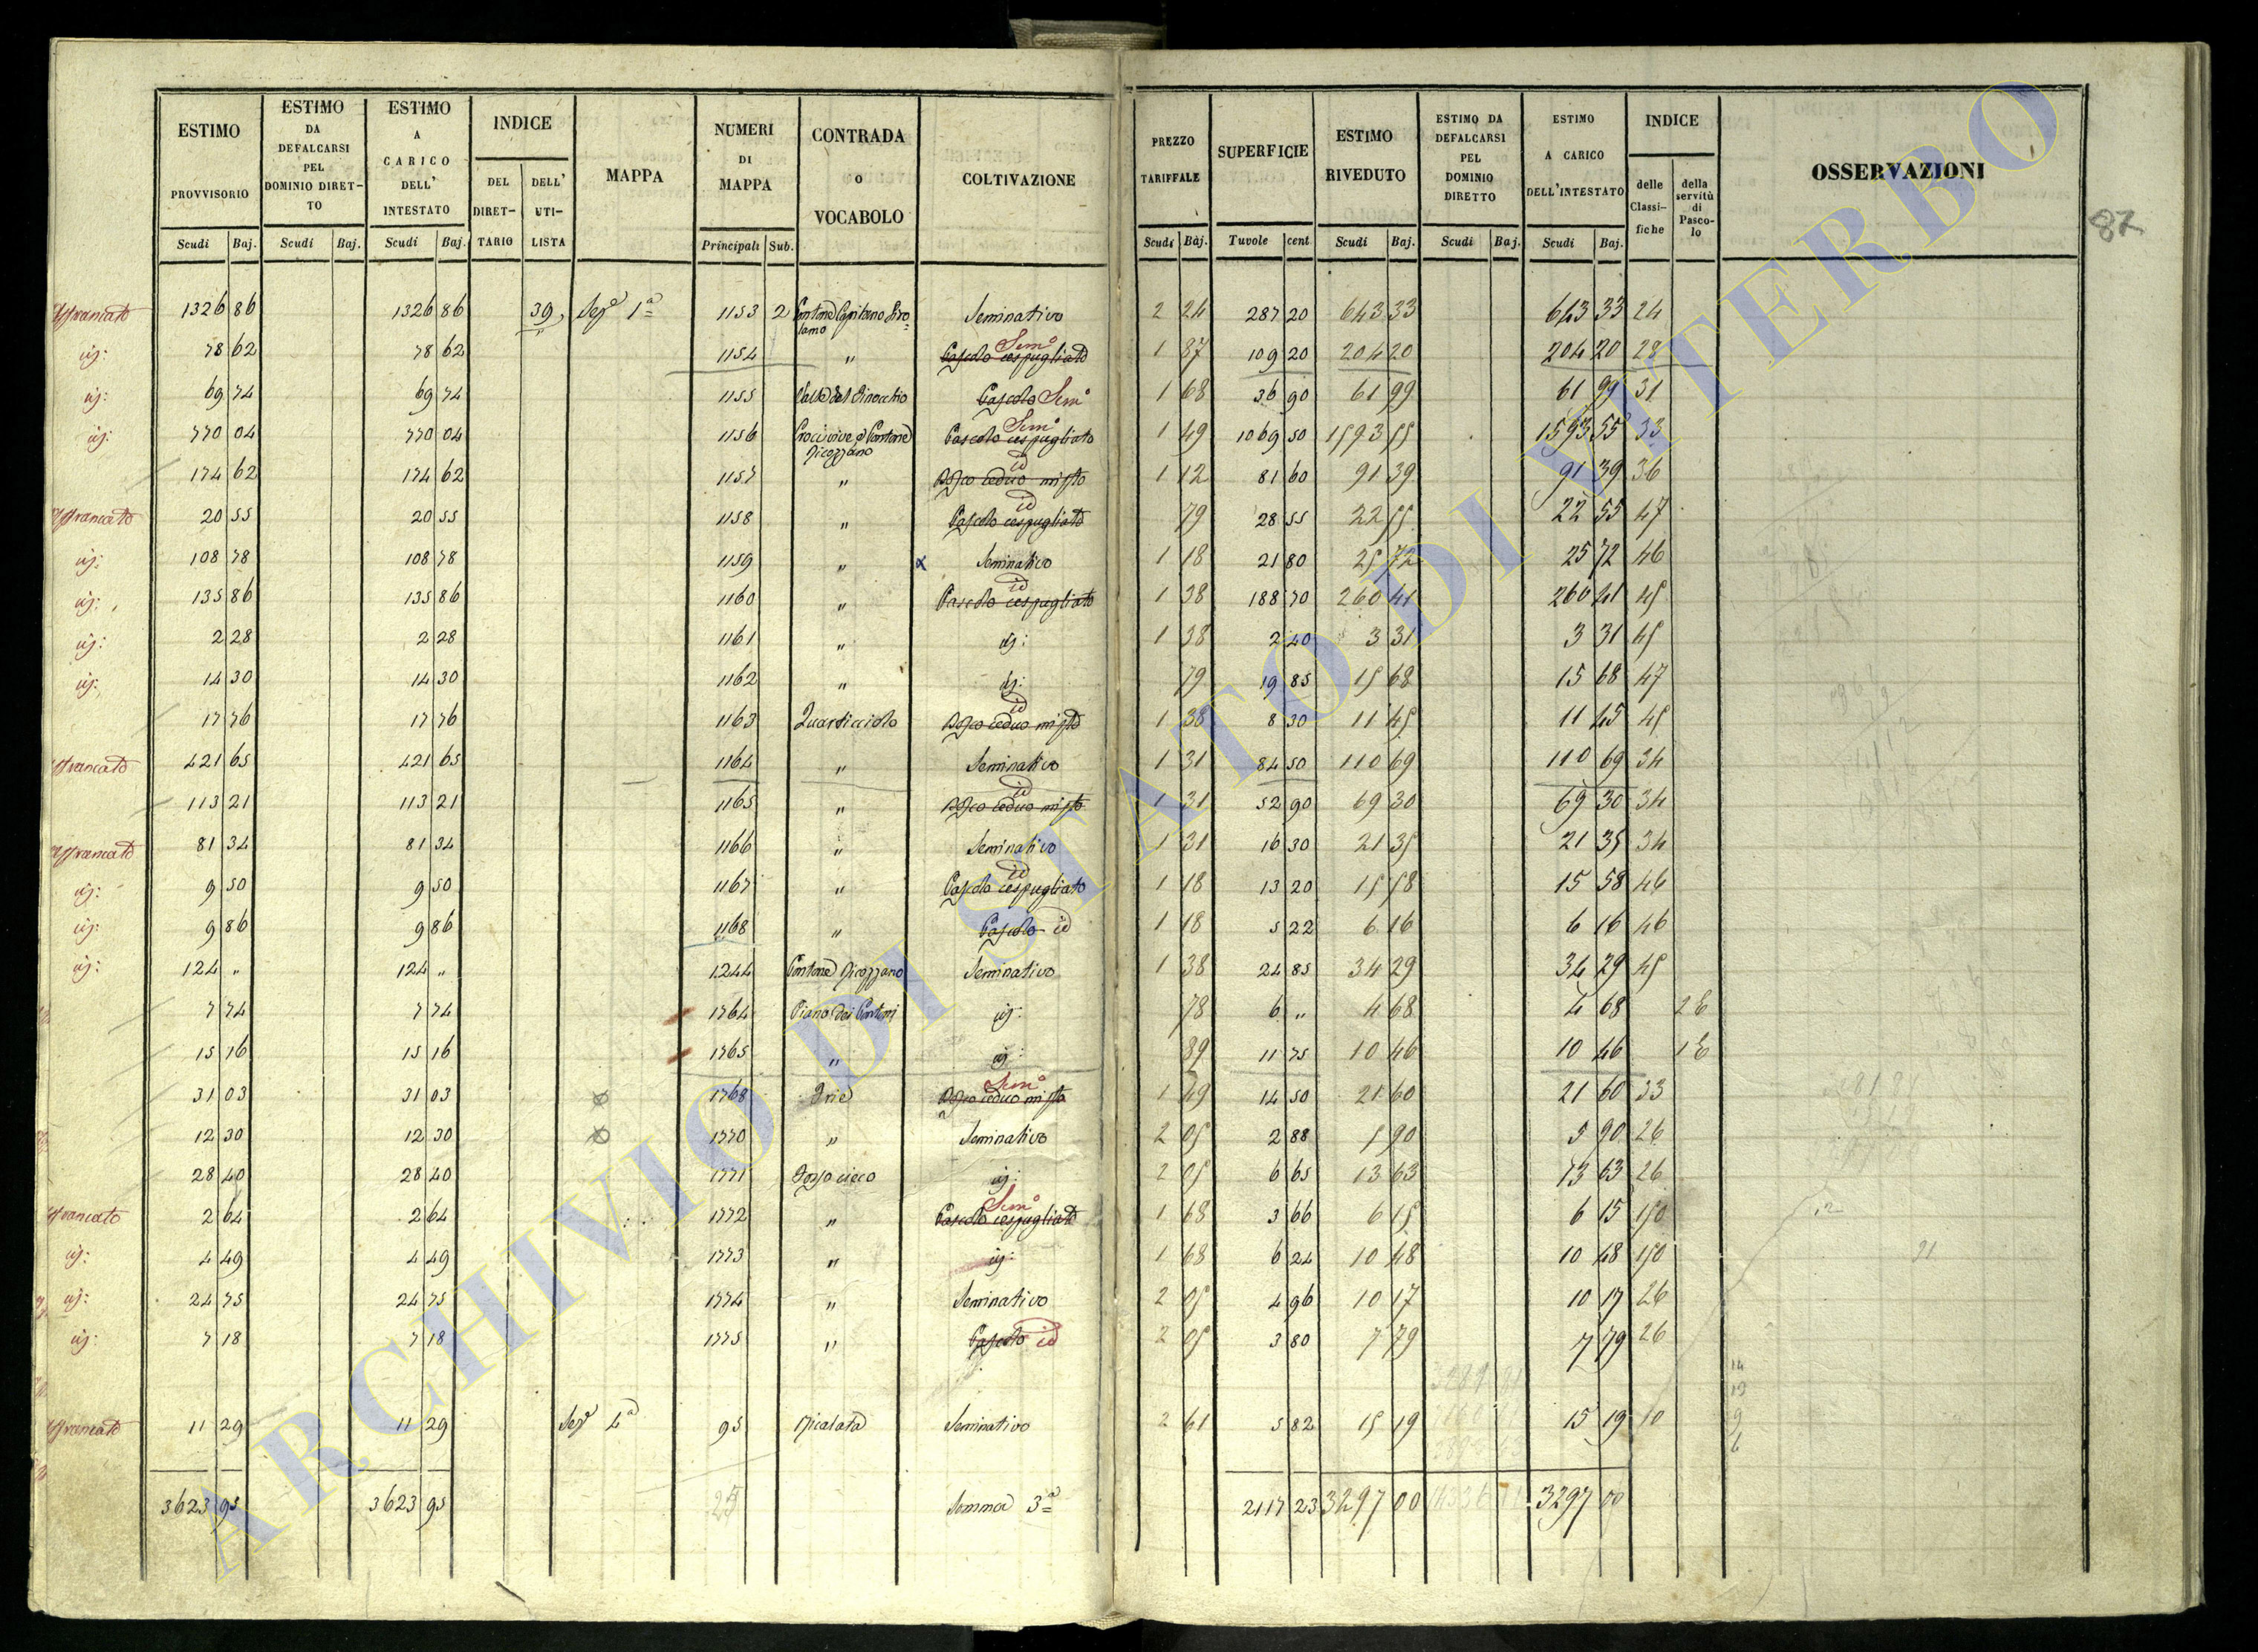 ESTIMO PROVVISORIO Scudi Baj. ESTIMO DA DEFALCARSI PEL DOMINIO DIRETTO Scudi Baj. ESTIMO A CARICO DELL' INTESTATO Scudi Baj. INDICE DEL DIRETTARIO DELL' UTILISTA MAPPA NUMERI DI MAPPA Principali Sub. CONTRADA o VOCABOLO COLTIVAZIONE PREZZO TARIFFALE Scudi Baj. SUPERFICIE Tavole cent ESTIMO RIVEDUTO Scudi Baj. ESTIMO DA DEFALCARSI PEL DOMINIO DIRETTO Scudi Baj. ESTIMO A CARICO DELL'INTESTATO Scudi Baj. INDICE delle Classifiche della servitù di Pascolo OSSERVAZIONI
87
Affrancato 1326 86 1326 86 39 Sez.e 1a 1153 2 Seminativo 2 24 287 20 643 33 643 33 24
id: 78 62 78 62 1154 " Pascolo cespugliato Sem.o 1 87 109 20 204 20 204 20 28
id: 69 74 69 74 1155 Valle del Finocchio Pascolo Sem.o 1 68 36 90 61 99 61 99 31
id: 770 04 770 04 1156 Pascolo cespugliato Sem.o 1 49 1069 50 1593 55 1593 55 33
174 62 174 62 1157 " Bosco ceduo misto id 1 12 81 60 91 39 91 39 36
Affrancato 20 55 20 55 1158 " Pascolo cespugliato id 79 28 55 22 55 22 55 47
id: 108 78 108 78 1159 " x Seminativo 1 18 21 80 25 72 25 72 46
id: 135 86 135 86 1160 " Pascolo cespugliato id 1 38 188 70 260 41 260 41 45
id: 2 28 2 28 1161 " id: 1 38 2 40 3 31 3 31 45
id: 14 30 14 30 1162 " id: 79 19 85 15 68 15 68 47
17 76 17 76 1163 Quarticciolo Bosco ceduo misto id 1 38 8 30 11 45 11 45 45
Affrancato 421 65 421 65 1164 " Seminativo 1 31 84 50 110 69 110 69 34
113 21 113 21 1165 " Bosco ceduo misto id 1 31 52 90 69 30 69 30 34
Affrancato 81 34 81 34 1166 " Seminativo 1 31 16 30 21 35 21 35 34
id: 9 50 9 50 1167 " Pascolo cespugliato id 1 18 13 20 15 58 15 58 46
id: 9 86 9 86 1168 " Pascolo id 1 18 5 22 6 16 6 16 46
id: 124 " 124 " 1244 Seminativo 1 38 24 85 34 29 34 29 45
7 74 7 74 1764 Piano dei id: 78 6 " 4 68 4 68 2 E
15 16 15 16 1765 " id: 89 11 75 10 46 10 46 1 E
31 03 31 03 1768 Bosco ceduo misto Sem.o 1 49 14 50 21 60 21 60 33
12 30 12 30 1770 " Seminativo 2 05 2 88 5 90 5 90 26
28 40 28 40 1771 Fosso cieco id: 2 05 6 65 13 63 13 63 26
Affrancato 2 64 2 64 1772 " Pascolo cespugliato Sem.o 1 68 3 66 6 15 6 15 150
id: 4 49 4 49 1773 " id: 1 68 6 24 10 48 10 48 150
id: 24 75 24 75 1774 " Seminativo 2 05 4 96 10 17 10 17 26
id: 7 18 7 18 1775 " Pascolo id 2 05 3 80 7 79 7 79 26
Affrancato 11 29 11 29 Sez.e 4a 95 Seminativo 2 61 5 82 15 19 15 19 10
3623 95 3623 95 25 Somma 3a 2117 23 3297 00 3297 00
ARCHIVIO DI STATO DI VITERBO